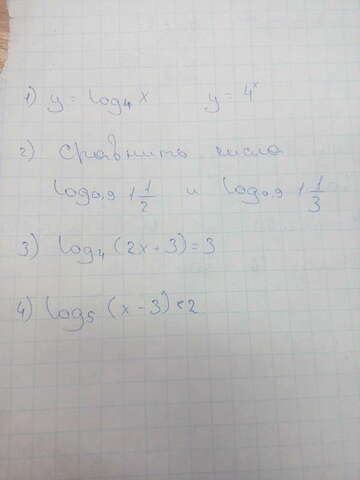 1) y = log₄ x y = 4ˣ
2) Сравнить числа
log₀,₉ 1 1/2 и log₀,₉ 1 1/3
3) log₄ (2x + 3) = 3
4) log₅ (x - 3) < 2